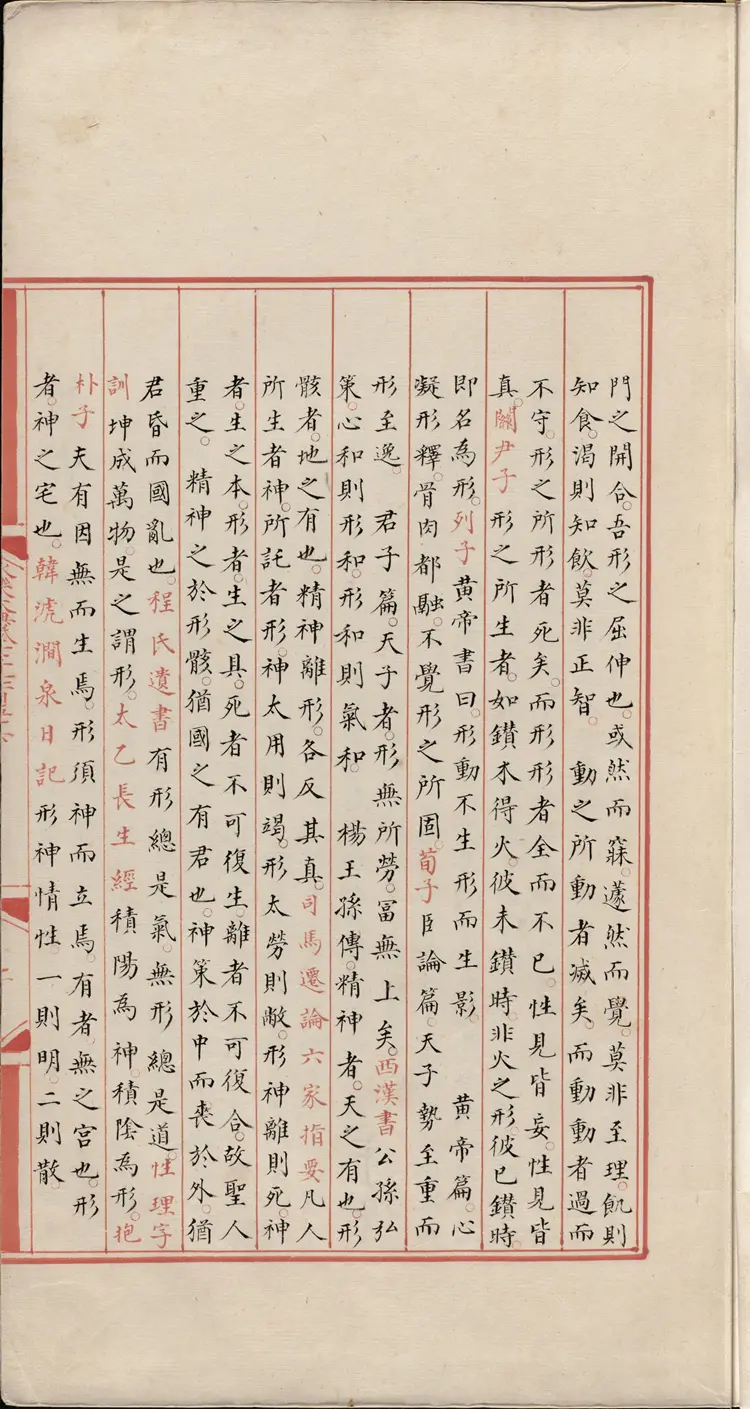 門之開合。吾形之屈伸也。或然而寐。蘧然而覺。莫非至理。飢則
知食。渴則知飲。莫非正智。 動之所動者滅矣。而動動者過而
不守。形之所形者死矣。而形形者全而不已。性見皆妄。性見皆
真。關尹子 形之所生者。如鑽木得火。彼未鑽時。非火之形。彼已鑽時。
即名為形。列子 黃帝書曰。形動不生形而生影。 黃帝篇。心
凝形釋。骨肉都融。不覺形之所固。荀子 臣論篇。天子勢至重而
形至逸。 君子篇。天子者。形無所勞。冨無上矣。西漢書 公孫弘
策。心和則形和。形和則氣和。 楊王孫傳。精神者。天之有也。形
骸者。地之有也。精神離形。各反其真。司馬遷論六家指要 凡人
所生者神。所託者形。神太用則竭。形太勞則敝。形神離則死。神
者。生之本。形者。生之具。死者不可復生。離者不可復合。故聖人
重之。 精神之於形骸。猶國之有君也。神策於中而喪於外。猶
君昏而國亂也。程氏遺書 有形總是氣。無形總是道。性理字
訓 坤成萬物。是之謂形。太乙長生經 積陽為神。積陰為形。抱
朴子 夫有因無而生焉。形須神而立焉。有者無之宮也。形
者。神之宅也。韓淲澗泉日記 形神情性。一則明。二則散。